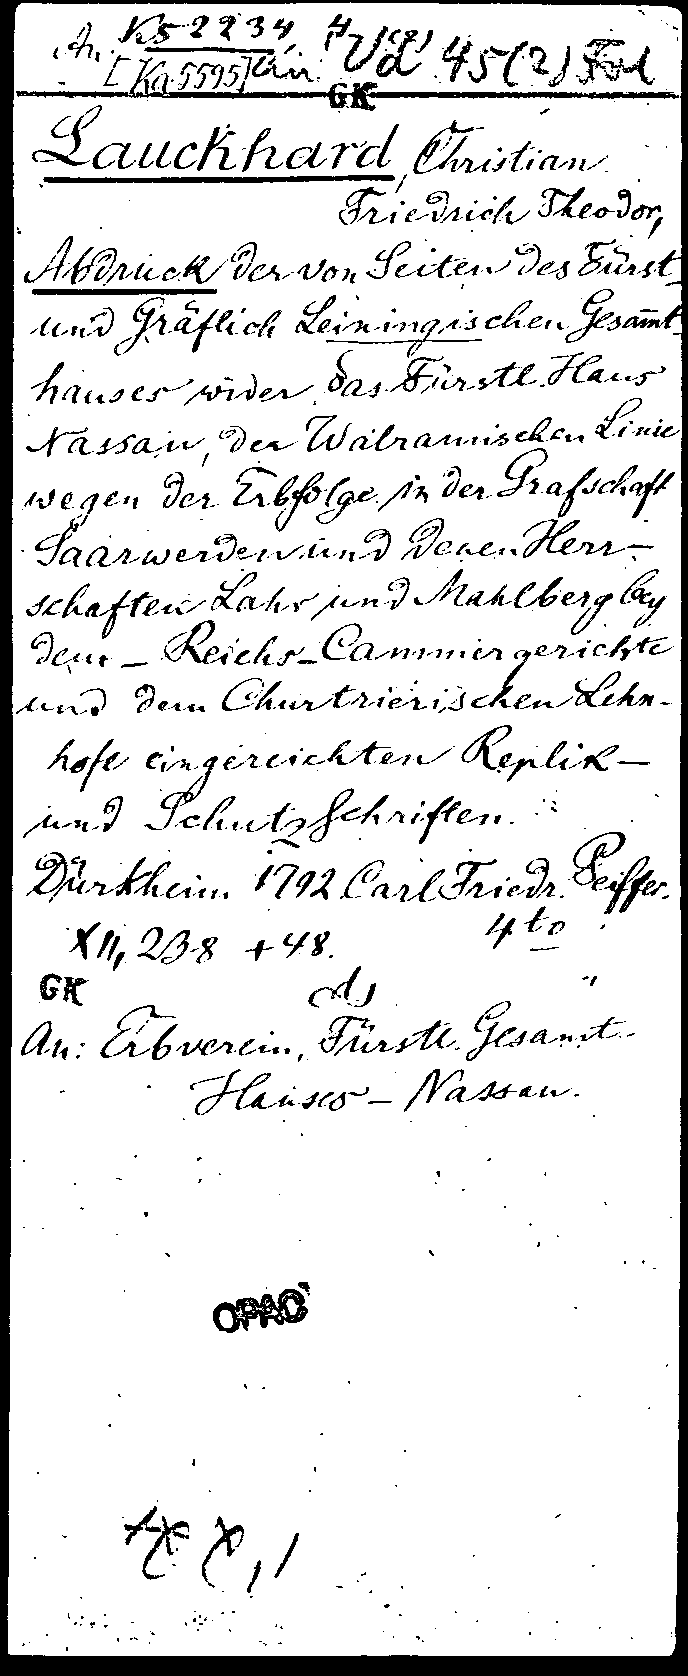 An. Ks 2234, 4° Vd 45(2) Fol
[Ka 5595]
GK
Lauckhard, Christian
Friedrich Theodor,
Abdruck der von Seiten des Fürst-
und Gräflich Leiningischen Gesam̄t-
hauses wider das Fürstl. Haus
Nassau, der Walramischen Linie
wegen der Erbfolge in der Grafschaft
Saarwerden und denen Herr-
schaften Lahr und Mahlberg bey
dem - Reichs-Cammergerichte
und dem Churtrierischen Lehn-
hofe eingereichten Replik-
und Schutzschriften.
Dürkheim 1792 Carl Friedr. Pfeiffer.
XII, 238 + 48. 4to
GK
An: Erbverein, Fürstl. Gesamt-
Hauses - Nassau.
OPAC